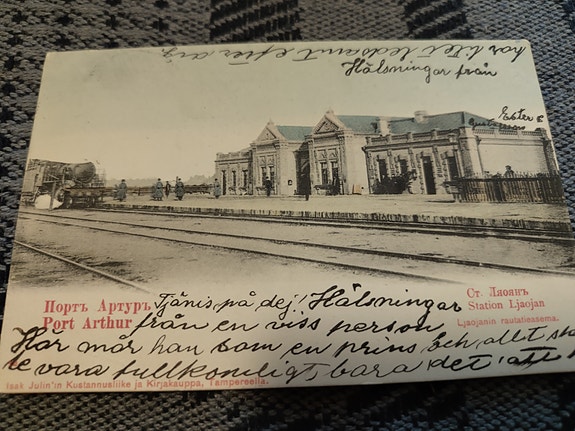 har blet ledsamt efter dig
Hälsningar från
Ester &
Портъ Артуръ
Port Arthur
Ст. Ляоянъ
Station Ljaojan
Ljaojanin rautatieasema.
Tjänis på dej! Hälsningar
från en viss person
Har mår han som en prins, och allt sku
le vara fullkomligt bara det ej allt
Isak Julin'in Kustannusliike ja Kirjakauppa, Tampereella.